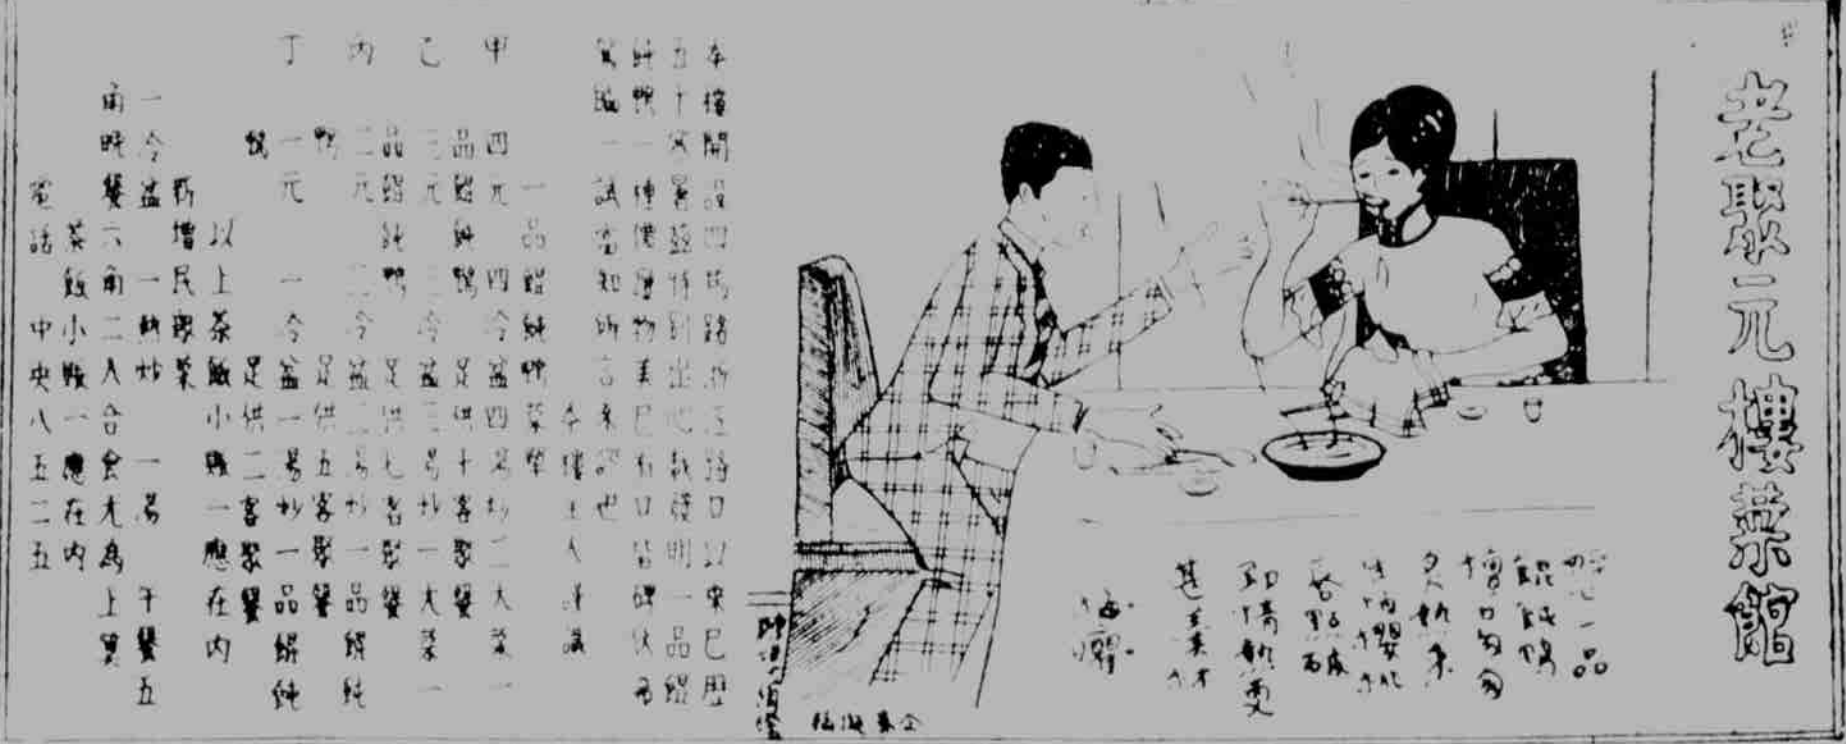 老聚元樓菜館
一品
餛飩鴨
檀口匆匆
櫻桃
唇點破
郎情熱更
本樓開設四馬路浙江路口以來已歷
五十寒暑茲特別出心裁發明一品餛
飩鴨一種價廉物美已有口皆碑伏希
駕臨一試當知所言不謬也
本樓主人謹識
一品餛飩鴨菜單
甲 四元 四冷盆四湯炒二大菜一
品餛飩鴨 足供十客聚餐
乙 三元 三冷盆三湯炒一大菜一
品餛飩鴨 足供七客聚餐
丙 二元 二冷盆二湯炒一品餛飩
鴨 足供五客聚餐
丁 一元 一冷盆一湯炒一品餛飩
鴨 足供二客聚餐
以上茶飯小賬一應在內
新增民眾菜
一冷盆 一熱炒 一湯 午餐五
角晚餐六角二人合食尤為上算
茶飯小賬一應在內
電話 中央八五二五